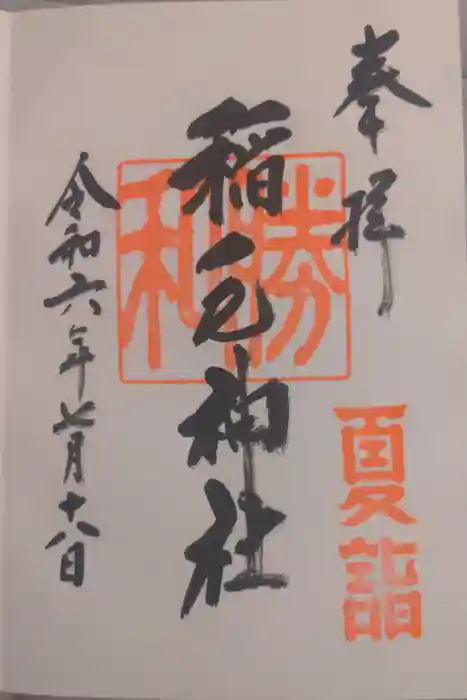 奉拝
夏詣
稲毛神社
勝利
令和六年七月十八日